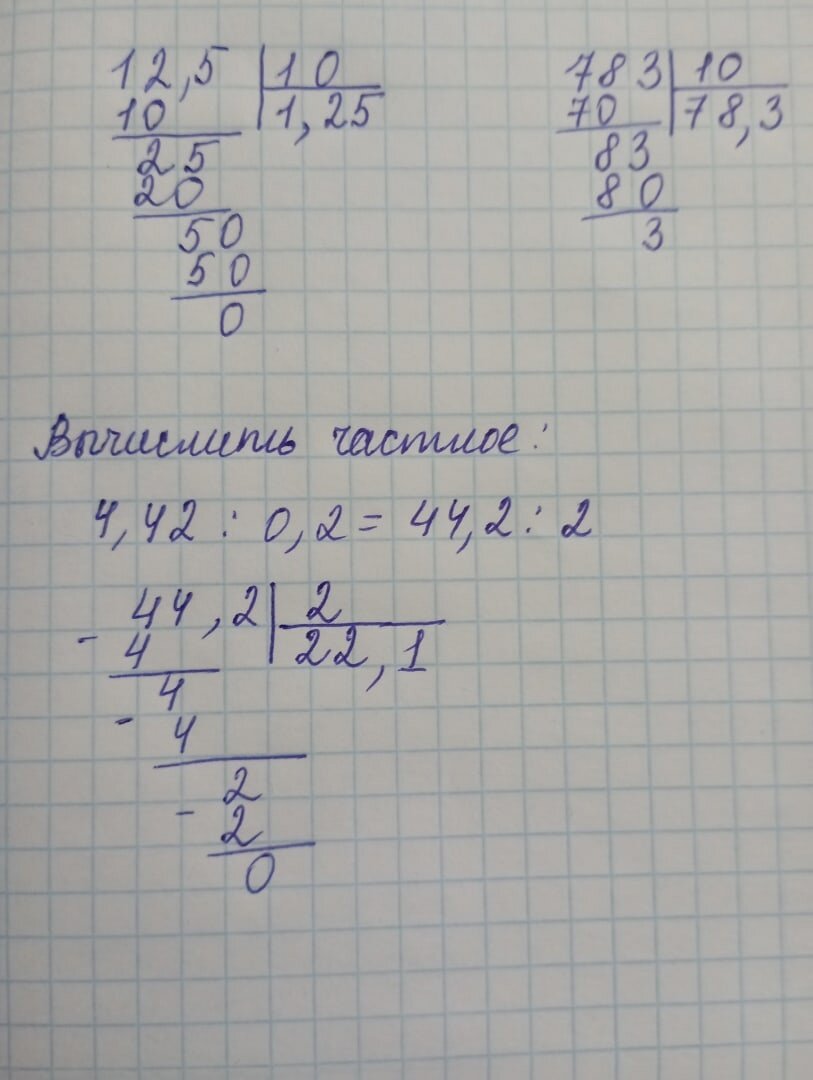 12,5 | 10
10 | 1,25
25
20
50
50
0
783 | 10
70 | 78,3
83
80
3
Вычислить частное:
4,42 : 0,2 = 44,2 : 2
44,2 | 2
- 4 | 22,1
4
- 4
2
- 2
0